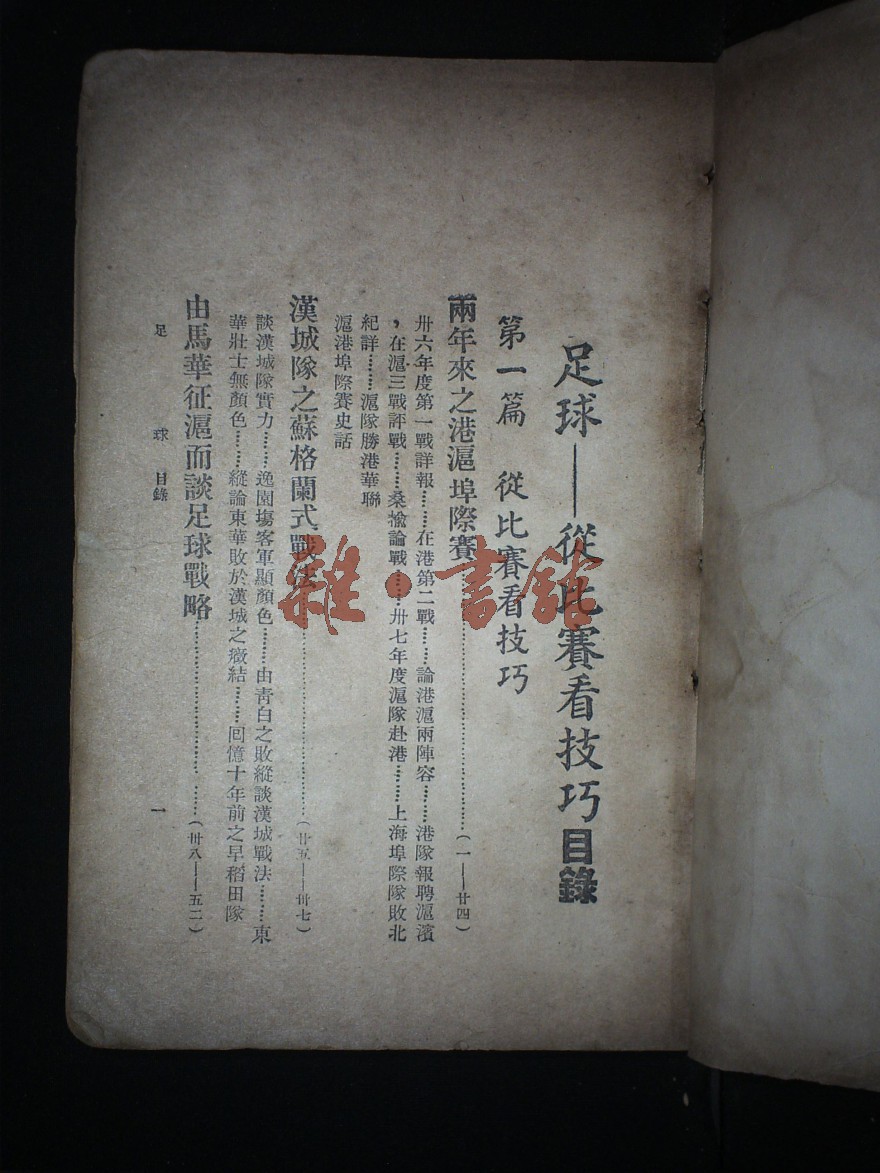 足球——從比賽看技巧目錄
第一篇　從比賽看技巧
兩年來之港滬埠際賽………………………………(一——廿四)
卅六年度第一戰詳報………在港第二戰………論港滬兩陣容………港隊報聘滬濱
，在滬三戰評戰………桑榆論戰………卅七年度滬隊赴港………上海埠際隊敗北
紀詳………滬隊勝港華聯
滬港埠際賽史話
漢城隊之蘇格蘭式戰法………………………………(廿五——卅七)
談漢城隊實力………逸園塲客軍顯顏色………由靑白之敗縱談漢城戰法………東
華壯士無顏色………縱論東華敗於漢城之癥結………回憶十年前之早稻田隊
由馬華征滬而談足球戰略………………………………(卅八——五二)
足　球　目錄　一
雜·書館